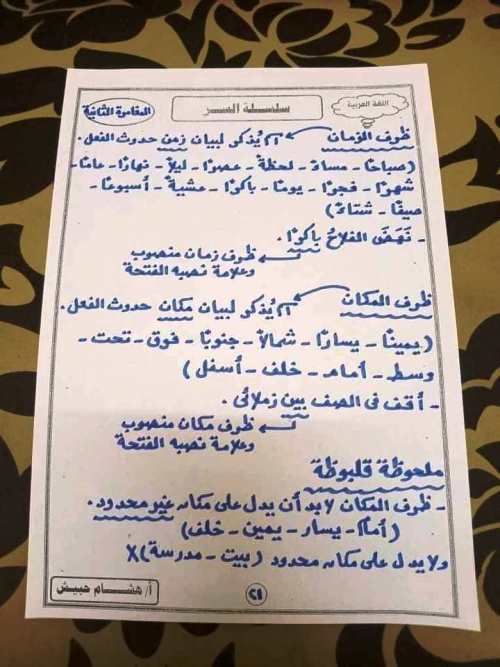 اللغة العربية
سلسلة السر
المغامرة الثانية
ظرف الزمان ← اسم يُذكر لبيان زمن حدوث الفعل.
(صباحًا - مساءً - لحظةً - عصرًا - ليلاً - نهارًا - عامًا -
شهرًا - فجرًا - يومًا - باكرًا - عشيةً - أسبوعًا -
صيفًا - شتاءً)
- نَهَضَ الفلاحُ باكرًا.
ظرف زمان منصوب
وعلامة نصبه الفتحة
ظرف المكان ← اسم يُذكر لبيان مكان حدوث الفعل.
(يمينًا - يسارًا - شمالاً - جنوبًا - فوق - تحت -
وسط - أمام - خلف - أسفل)
- أقف فى الصف بين زملائى.
ظرف مكان منصوب
وعلامة نصبه الفتحة
ملحوظة قلبوظة
- ظرف المكان لابد أن يدل على مكان غير محدود.
(أمام - يسار - يمين - خلف)
ولا يدل على مكان محدود (بيت - مدرسة) X
٢١
أ/ هشام حبيش